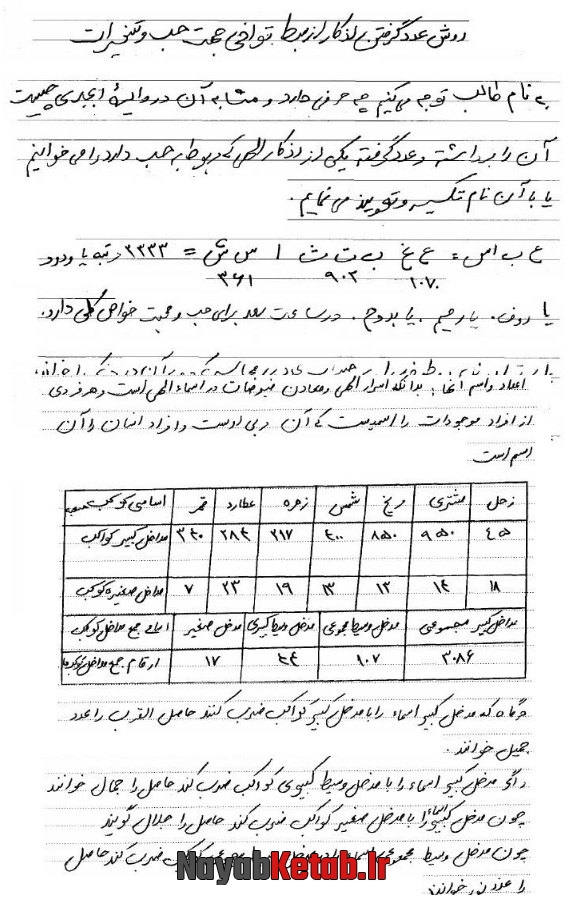 روش عدد گرفتن با اذکار از بسط توافی جهت حب و تسخیرات
به نام طالب توجه می‌کنیم چه حرفی دارد و مشابه آن در دوایرهٔ ابجدی چیست
آن را برداشته و عدد گرفته یکی از اذکار الهی که مربوط به حب دارد را می‌خوانیم
یا با آن نام تکسیر و تعویذ می‌نمایم.
ع ب اس = ع غ ب ت ث ا س ش = ۲۳۳۳ مرتبه یا ودود
۱۰۷۰ ۹۰۲ ۳۶۱
یا روف. یا رحیم. یا بدوح. در ساعت سعد برای حب و محبت خواص کلی دارد.
اعداد واسم آنها: بدانکه اسرار الهی ومعادن فیوضات در اسماء الهی است و هر فردی
از افراد موجودات را اسمیست که آن ربی اوست و افراد انسان را آن
اسم است
زحل مشتری مریخ شمس زهره عطارد قمر اسامی کوکب
۴۵ ۹۵۰ ۸۵۰ ۴۰۰ ۲۱۷ ۲۸۴ ۳۴۰ مداخل کبیر کواکب
۱۸ ۱۴ ۱۳ ۱۳ ۱۹ ۲۳ ۷ مداخل صغیره کوکب
مداخل کبیر مجموعی مدخل وسیط مجموعی مدخل وسیط کبیری مدخل صغیر اسامی جمع مداخل کوکب
۳۰۸۶ ۱۰۷ ۴۴ ۱۷ ارقام جمع مداخل
هرگاه که مدخل کبیر اسماء را با مدخل کبیر کواکب ضرب کنند حاصل الضرب را عدد
جمیل خوانند.
و اگر مدخل کبیر اسماء را با مدخل وسیط کبیری کواکب ضرب کند حاصل را جمال خوانند
چون مدخل کبیر اسماء را با مدخل صغیر کواکب ضرب کند حاصل را جلال گویند
چون مدخل وسیط مجموعی ضرب کند حاصل
را خوانند
NayabKetab.Ir